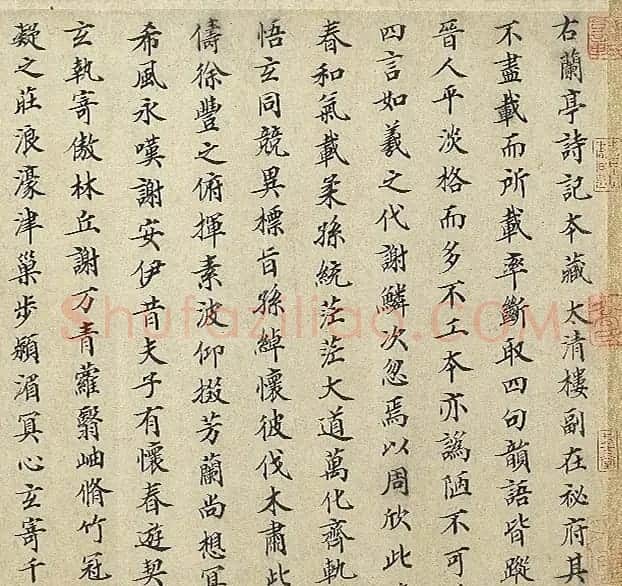 右蘭亭詩記本藏大清樓副在祕府其
不盡載而所載率斷取四句韻語皆蹤
晉人平淡格而多不工本亦譌陋不可
四言如羲之代謝鱗次忽焉以周欣此
春和氣載柔孫統茫茫大道萬化齊軌
悟玄同競異標旨孫綽懷彼伐木肅此
儔徐豐之俯揮素波仰掇芳蘭尚想冥
希風永嘆謝安伊昔夫子有懷春遊契
玄執寄傲林丘謝万青蘿翳岫脩竹冠
凝之莊浪濠津巢步潁湄冥心玄寄千
Shufaziliao.com